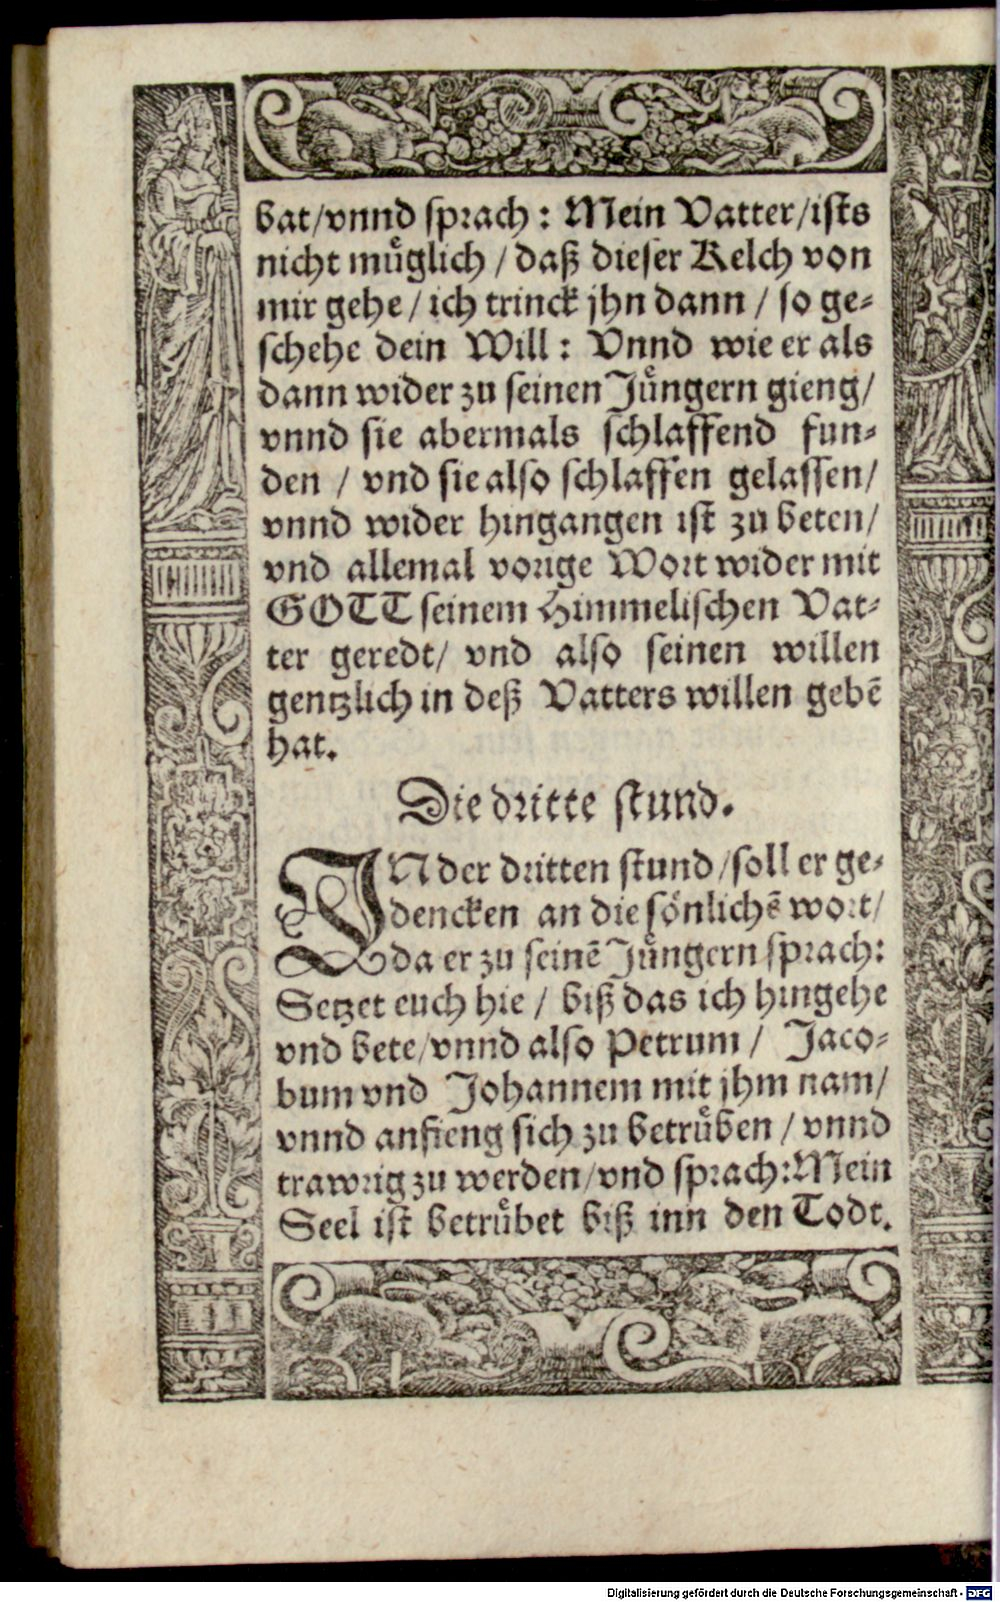 bat/vnnd sprach: Mein Vatter/ists
nicht muͤglich / daß dieser Kelch von
mir gehe / ich trinck jhn dann / so ge-
schehe dein Will: Vnnd wie er als
dann wider zu seinen Juͤngern gieng/
vnnd sie abermals schlaffend fun-
den / vnd sie also schlaffen gelassen/
vnnd wider hingangen ist zu beten/
vnd allemal vorige Wort wider mit
GOTT seinem Himmelischen Vat-
ter geredt/ vnd also seinen willen
gentzlich in deß Vatters willen gebẽ
hat.
Die dritte stund.
IN der dritten stund/soll er ge-
dencken an die sönlichẽ wort/
da er zu seinẽ Juͤngern sprach:
Setzet euch hie / biß das ich hingehe
vnd bete/vnnd also Petrum / Jaco-
bum vnd Johannem mit jhm nam/
vnnd anfieng sich zu betruͤben / vnnd
trawrig zu werden/vnd sprach: Mein
Seel ist betruͤbet biß inn den Todt.
Digitalisierung gefördert durch die Deutsche Forschungsgemeinschaft - DFG